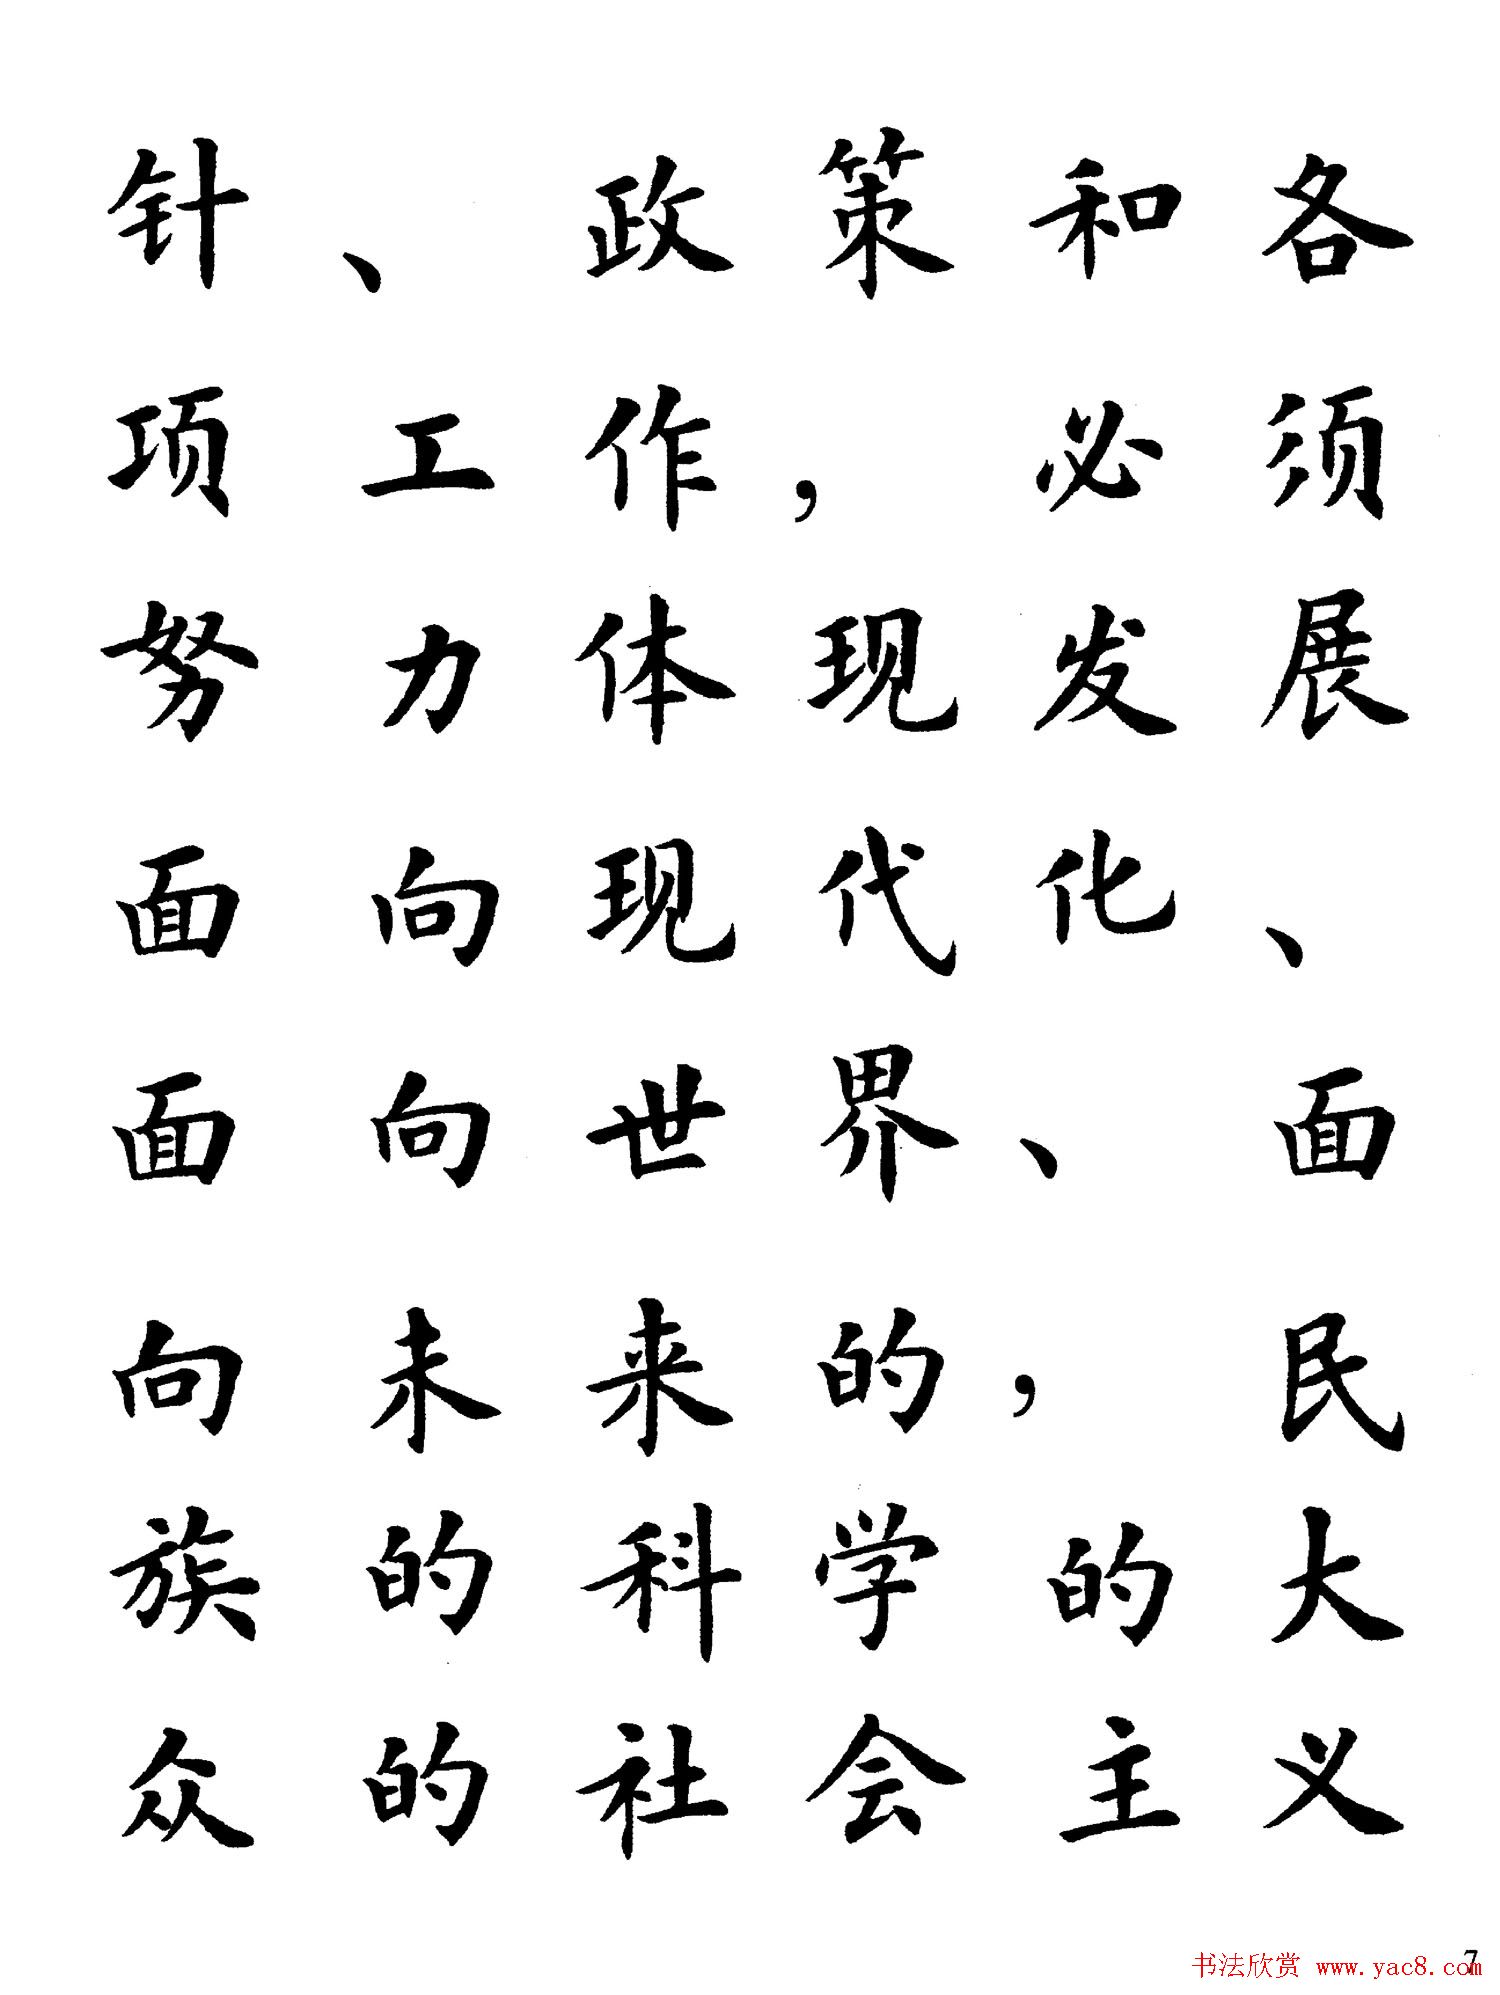 针、政策和各
项工作，必须
努力体现发展
面向现代化、
面向世界、面
向未来的，民
族的科学的大
众的社会主义
7
书法欣赏 www.yac8.com